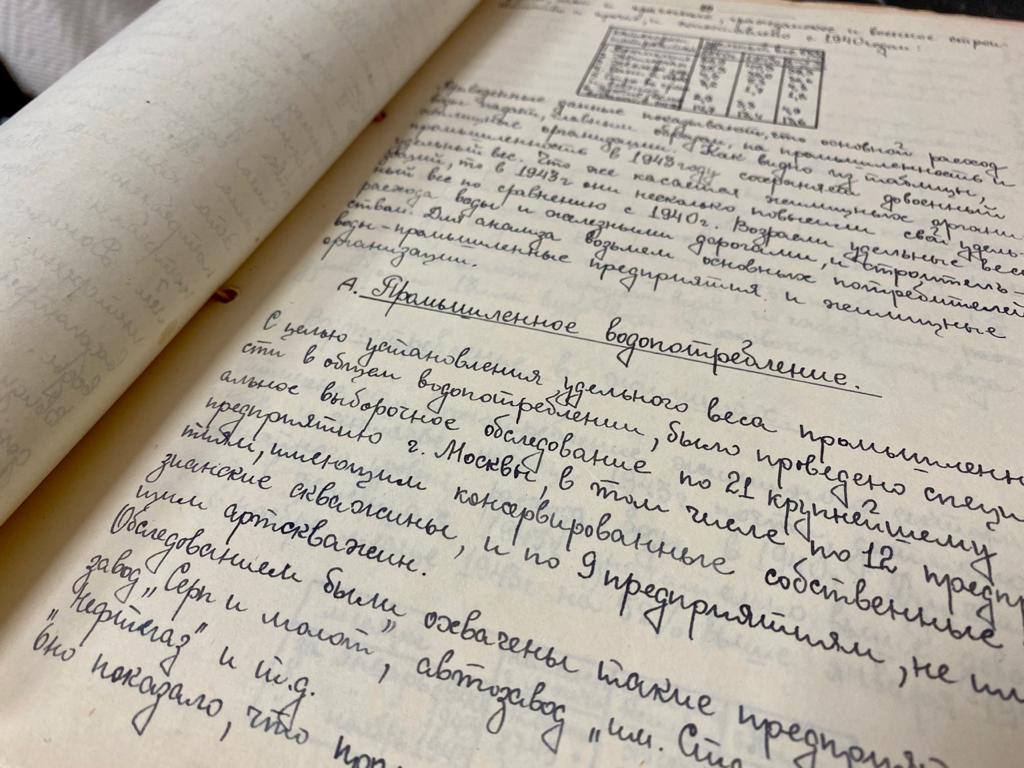 гражданское и военное строи-
с 1940 годом:
Приведенные данные показывают, что основной расход
воды падает, главным образом, на промышленность и
жилищные организации. Как видно из таблицы,
промышленность в 1943 году сохраняет довоенный
удельный вес. Что же касается жилищных органи-
заций, то в 1943 г они несколько повысили свой удель-
ный вес по сравнению с 1940 г. Возрасли удельные веса
расхода воды и железными дорогами, и строитель-
ством. Для анализа возьмем основных потребителей
воды-промышленные предприятия и жилищные
организации.
А. Промышленное водопотребление.
С целью установления удельного веса промышленно
сти в общем водопотреблении, было проведено специ
альное выборочное обследование по 21 крупнейшему
предприятию г. Москвы, в том числе по 12 предпр
тиям, имеющим консервированные собственные
зианские скважины, и по 9 предприятиям, не им
щим артскважин.
Обследованием были охвачены такие предприят
завод „Серп и молот", автозавод „им. Ста
„Нефтегаз" и т.д.
Оно показало, что